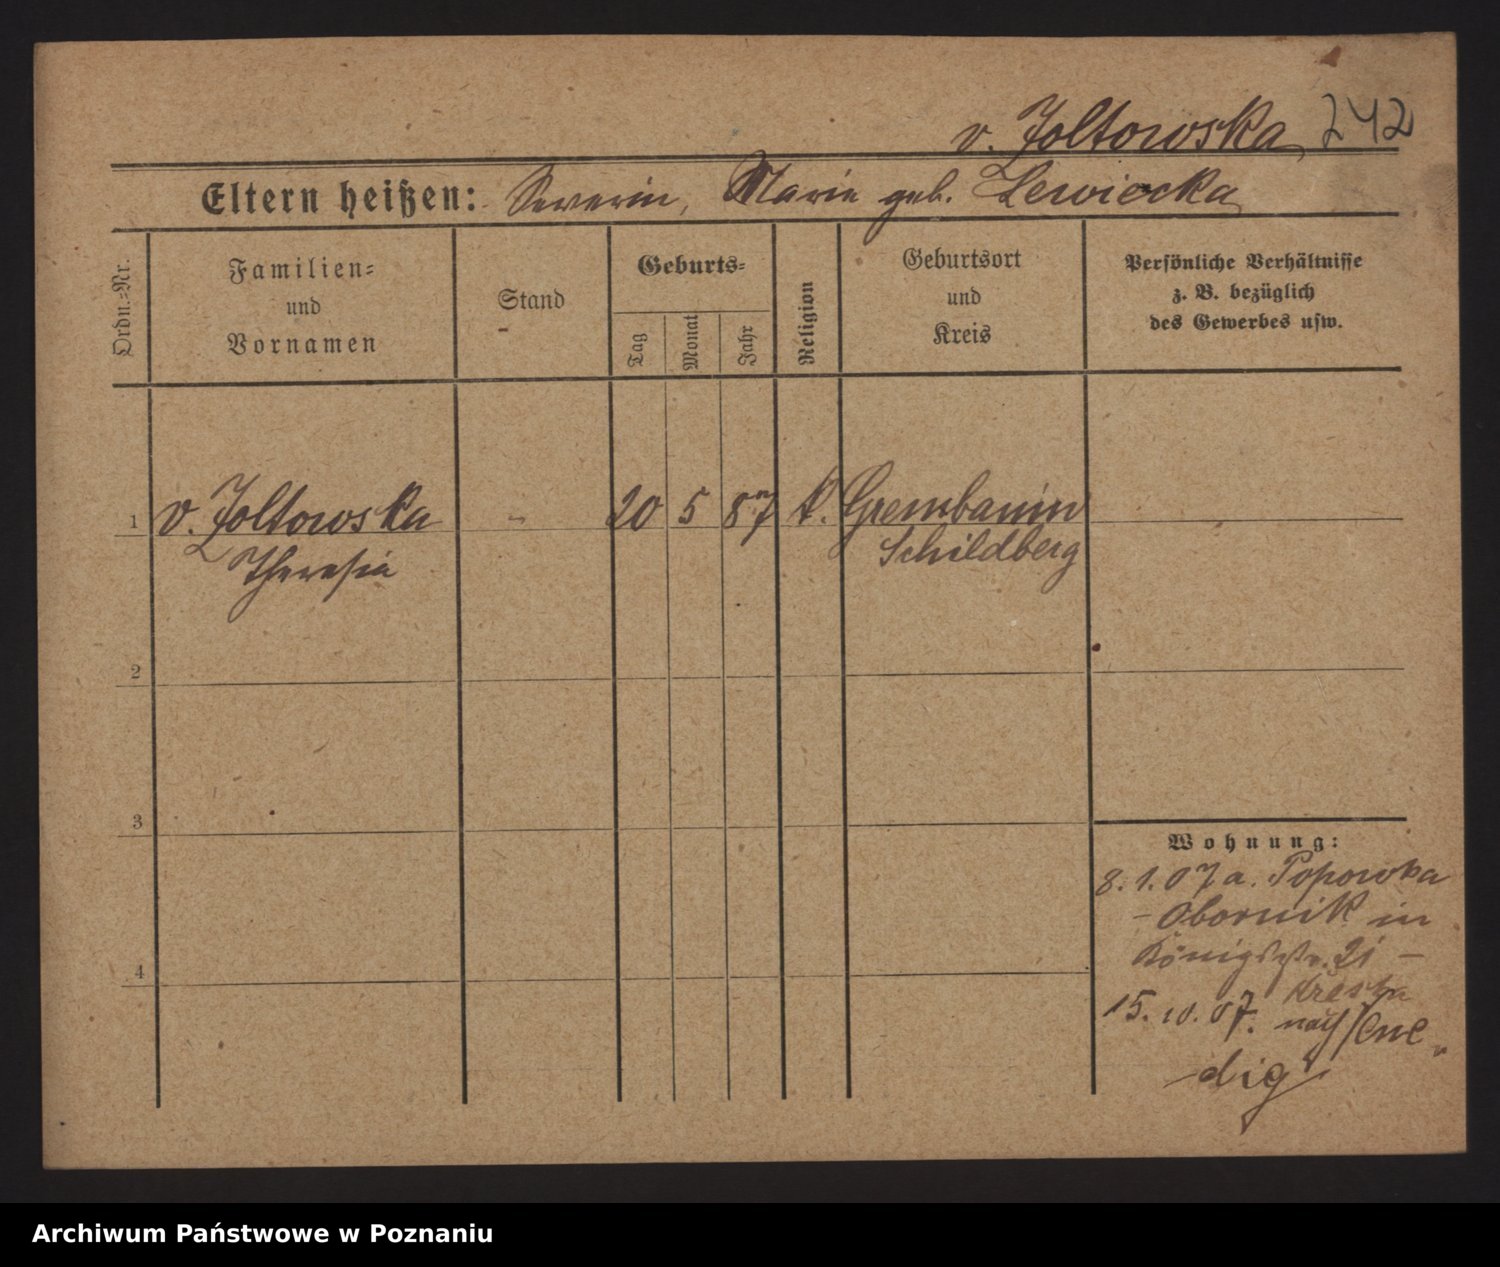 v. Zoltowska, 242
Eltern heißen: Severin, Marie geb. Lewiecka
Ordn.-Nr.
Familien-
und
Vornamen
Stand
Geburts-
Tag
Monat
Jahr
Religion
Geburtsort
und
Kreis
Persönliche Verhältnisse
z. B. bezüglich
des Gewerbes usw.
1 v. Zoltowska - 20 5 87 k. Grembanin
Theresia Schildberg
2
3
4
Wohnung:
8. 1. 07 a. Popowka
- Obornik in
Königstr. 21 -
15. 10. 07. nach Vene-
dig
Archiwum Państwowe w Poznaniu